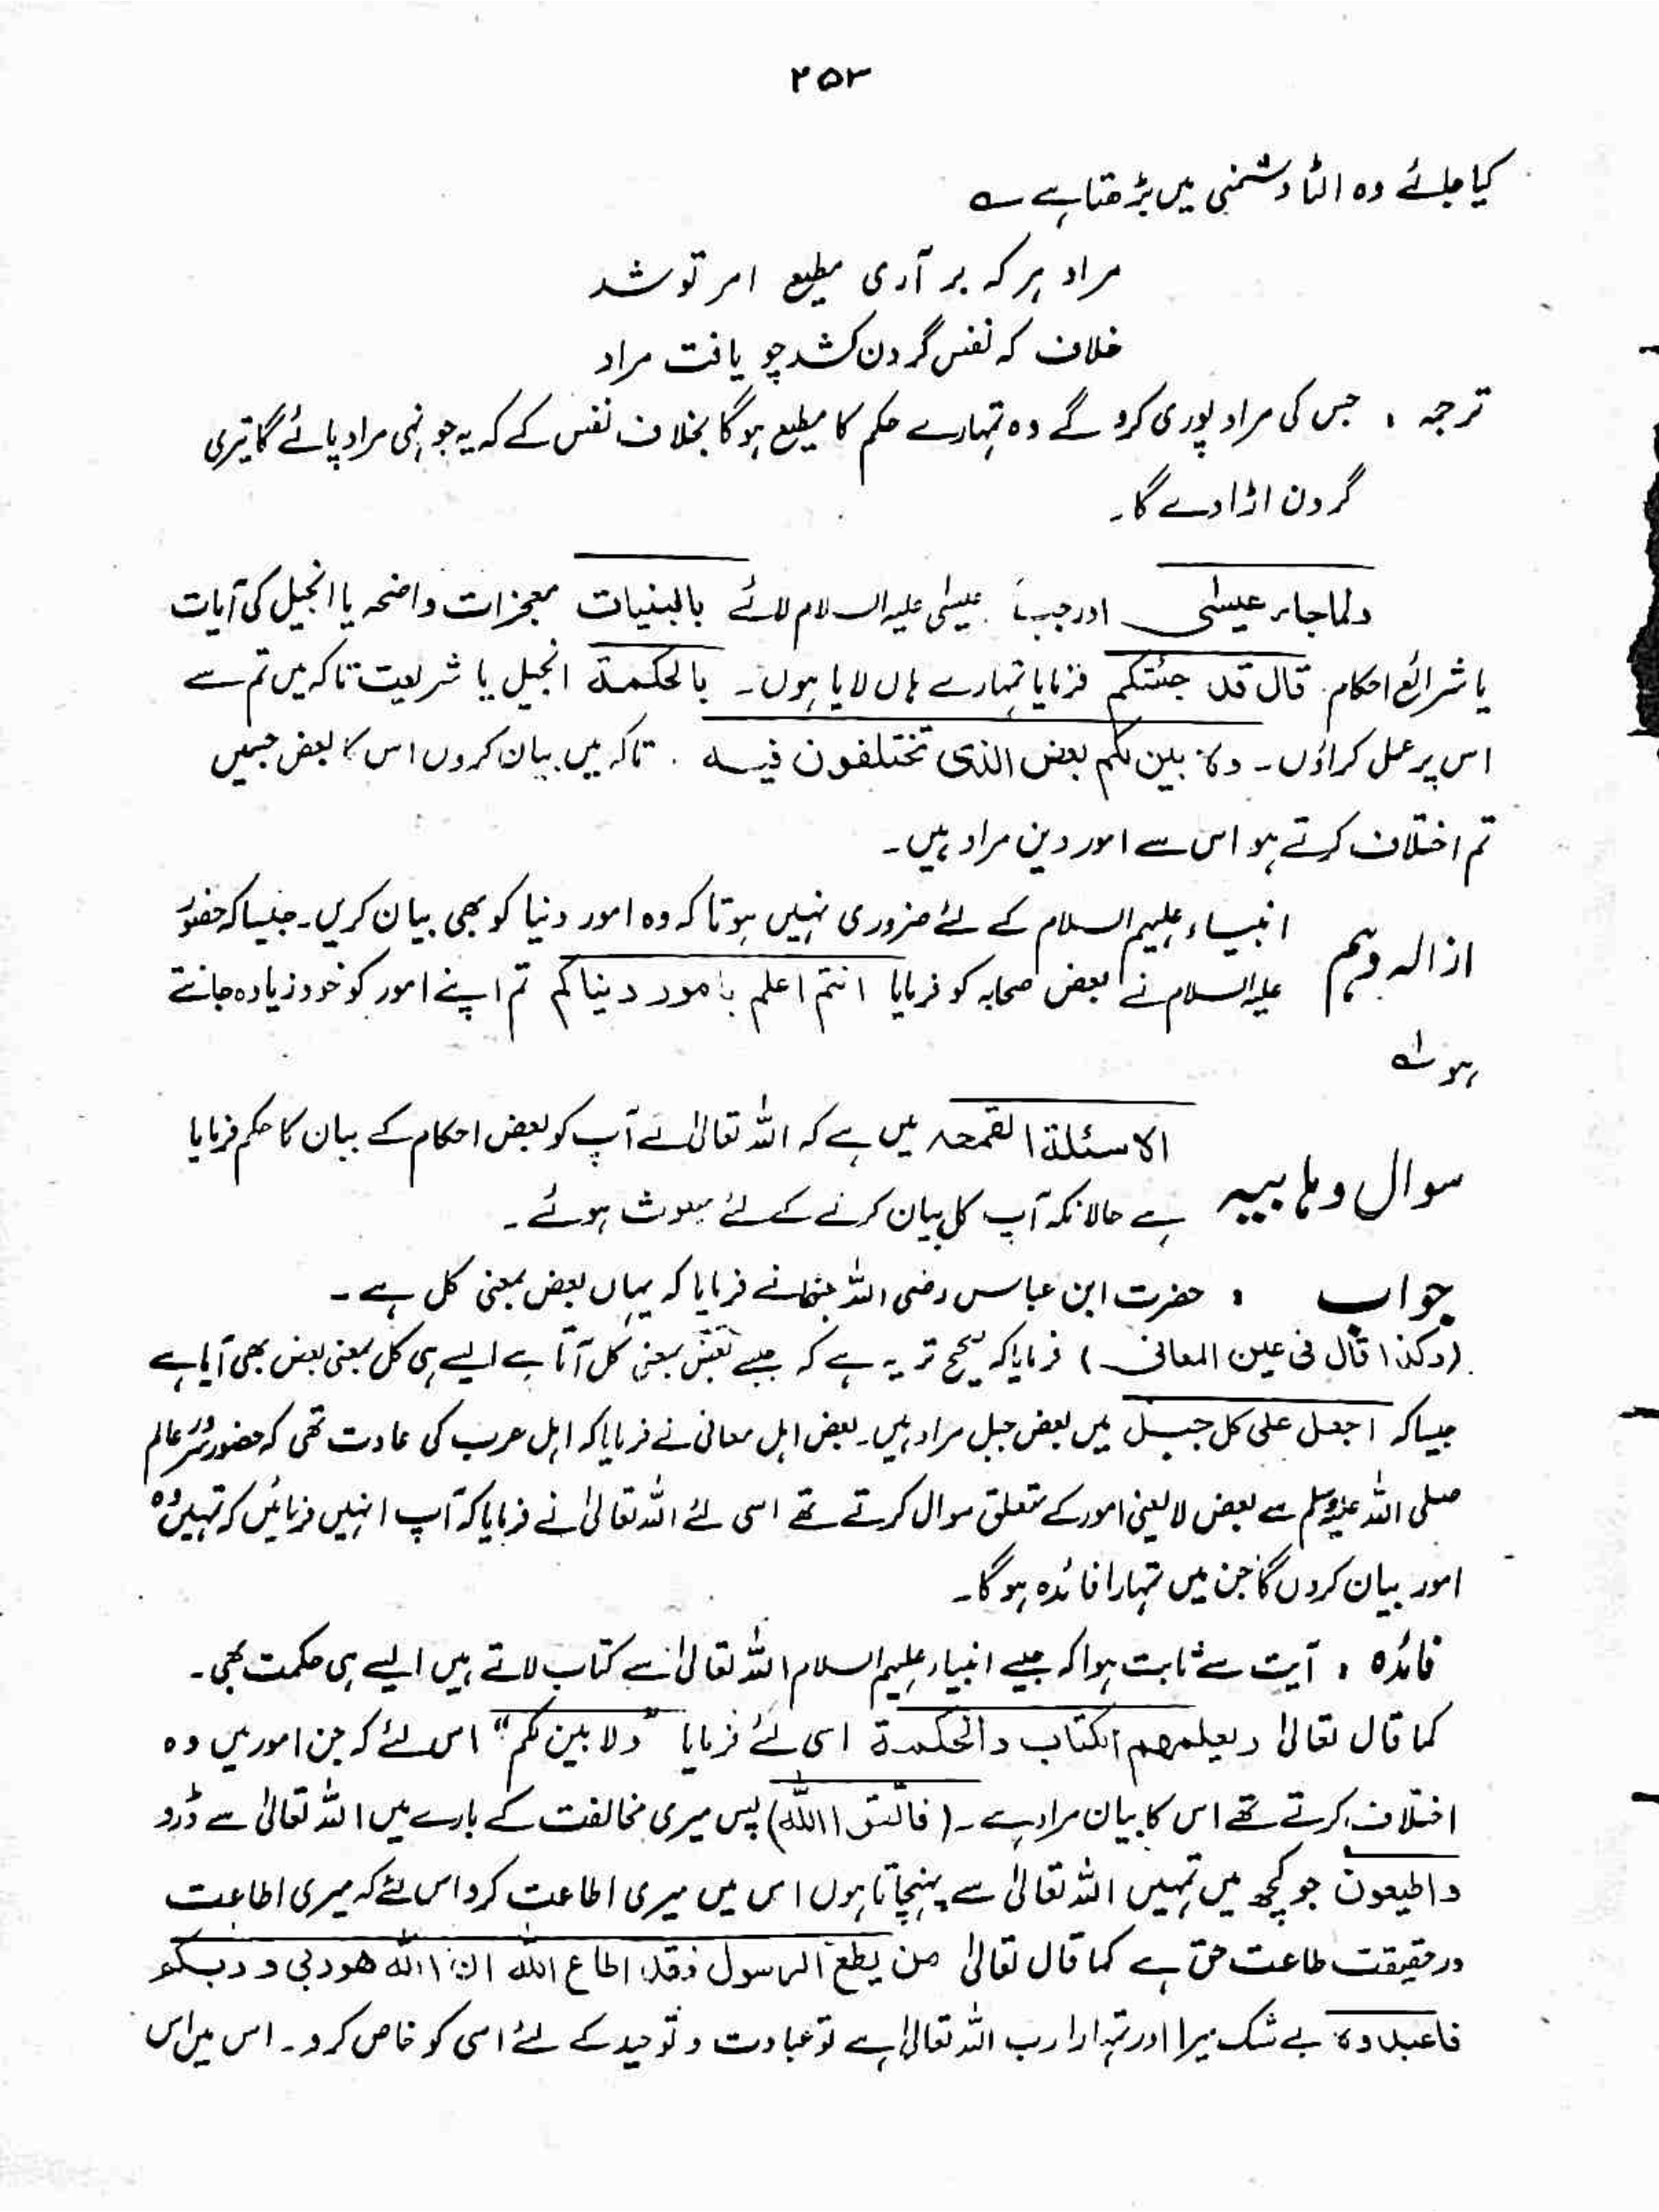 ۲۵۳
کیا جائے وہ الٹا دشمنی میں بڑھتا ہے ؎
مراد ہر کہ بر آری مطیع امر تو شد
خلاف کہ نفس گردن کشد چو یافت مراد
ترجمہ : جس کی مراد پوری کرو گے وہ تمہارے حکم کا مطیع ہوگا بخلاف نفس کے کہ یہ جونہی مراد پائے گا تیری
گردن اڑا دے گا۔
ولما جاء عیسٰی اور جب عیسٰی علیہ السلام لائے بالبنیات معجزات واضحہ یا انجیل کی آیات
یا شرائع احکام قال قد جئتکم فرمایا تمہارے ہاں لایا ہوں۔ بالحکمة انجیل یا شریعت تاکہ میں تم سے
اس پر عمل کراؤں۔ ولا بین لکم بعض الذی تختلفون فیه . تاکہ میں بیان کروں اس کا بعض جسمیں
تم اختلاف کرتے ہو اس سے امور دین مراد ہیں۔
انبیاء علیہم السلام کے لئے ضروری نہیں ہوتا کہ وہ امور دنیا کو بھی بیان کریں۔ جیسا کہ حضور
ازالہ وہم علیہ السلام نے بعض صحابہ کو فرمایا انتم اعلم بامور دنیاکم تم اپنے امور کو خود زیادہ جانتے
ہو
الاسئلة القمحہ میں ہے کہ اللہ تعالیٰ نے آپ کو بعض احکام کے بیان کا حکم فرمایا
سوال وہابیہ ہے حالانکہ آپ کل بیان کرنے کے لئے مبعوث ہوئے۔
جواب : حضرت ابن عباس رضی اللہ عنہما نے فرمایا کہ یہاں بعض بمعنی کل ہے۔
(وکذا قال فی عین المعانی) فرمایا کہ صحیح تر یہ ہے کہ جیسے بعض بمعنی کل آتا ہے ایسے ہی کل بمعنی بعض بھی آیا ہے
جیسا کہ اجعل علی کل جبل میں بعض جبل مراد ہیں۔ بعض اہل معانی نے فرمایا کہ اہل عرب کی عادت تھی کہ حضور سرور عالم
صلی اللہ علیہ وسلم سے بعض لا یعنی امور کے متعلق سوال کرتے تھے اسی لئے اللہ تعالیٰ نے فرمایا کہ آپ انہیں فرمائیں کہ تمہیں وہ
امور بیان کروں گا جن میں تمہارا فائدہ ہوگا۔
فائدہ : آیت سے ثابت ہوا کہ جیسے انبیاء علیہم السلام اللہ تعالیٰ سے کتاب لاتے ہیں ایسے ہی حکمت بھی۔
کما قال تعالیٰ ویعلمهم الکتاب والحکمة اسی لئے فرمایا "ولا بین لکم" اس لئے کہ جن امور میں وہ
اختلاف کرتے تھے اس کا بیان مراد ہے۔ (فاتقوا اللّٰہ) پس میری مخالفت کے بارے میں اللہ تعالیٰ سے ڈرو
واطیعون جو کچھ میں تمہیں اللہ تعالیٰ سے پہنچاتا ہوں اس میں میری اطاعت کرو اس لئے کہ میری اطاعت
درحقیقت طاعت حق ہے کما قال تعالیٰ من یطع الرسول فقد اطاع اللّٰہ ان اللّٰہ هو ربی و ربکم
فاعبدوہ بے شک میرا اور تمہارا رب اللہ تعالیٰ ہے تو عبادت و توحید کے لئے اسی کو خاص کرو۔ اس میں اس